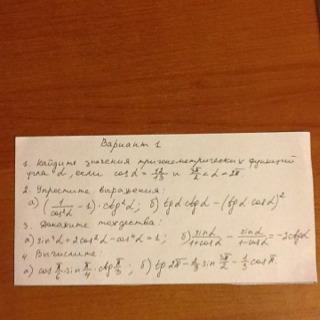 Вариант 1
1. Найдите значения тригонометрических функций
угла α, если cos α = 12/13 и 3π/2 < α < 2π
2. Упростите выражения:
а) (1/cos²α - 1) · ctg²α; б) tgα ctgα - (tgα cosα)²
3. Докажите тождества:
а) sin⁴α + 2cos²α - cos⁴α = 1; б) sinα/1+cosα - sinα/1-cosα = -2ctgα
4. Вычислите:
а) cos π/6 · sin π/4 · ctg π/3; б) tg 2π - sin 3π/2 - cos π.